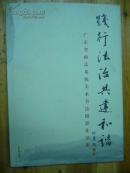 践行法治共建和谐
广东省政法系统美术书法摄影作品集